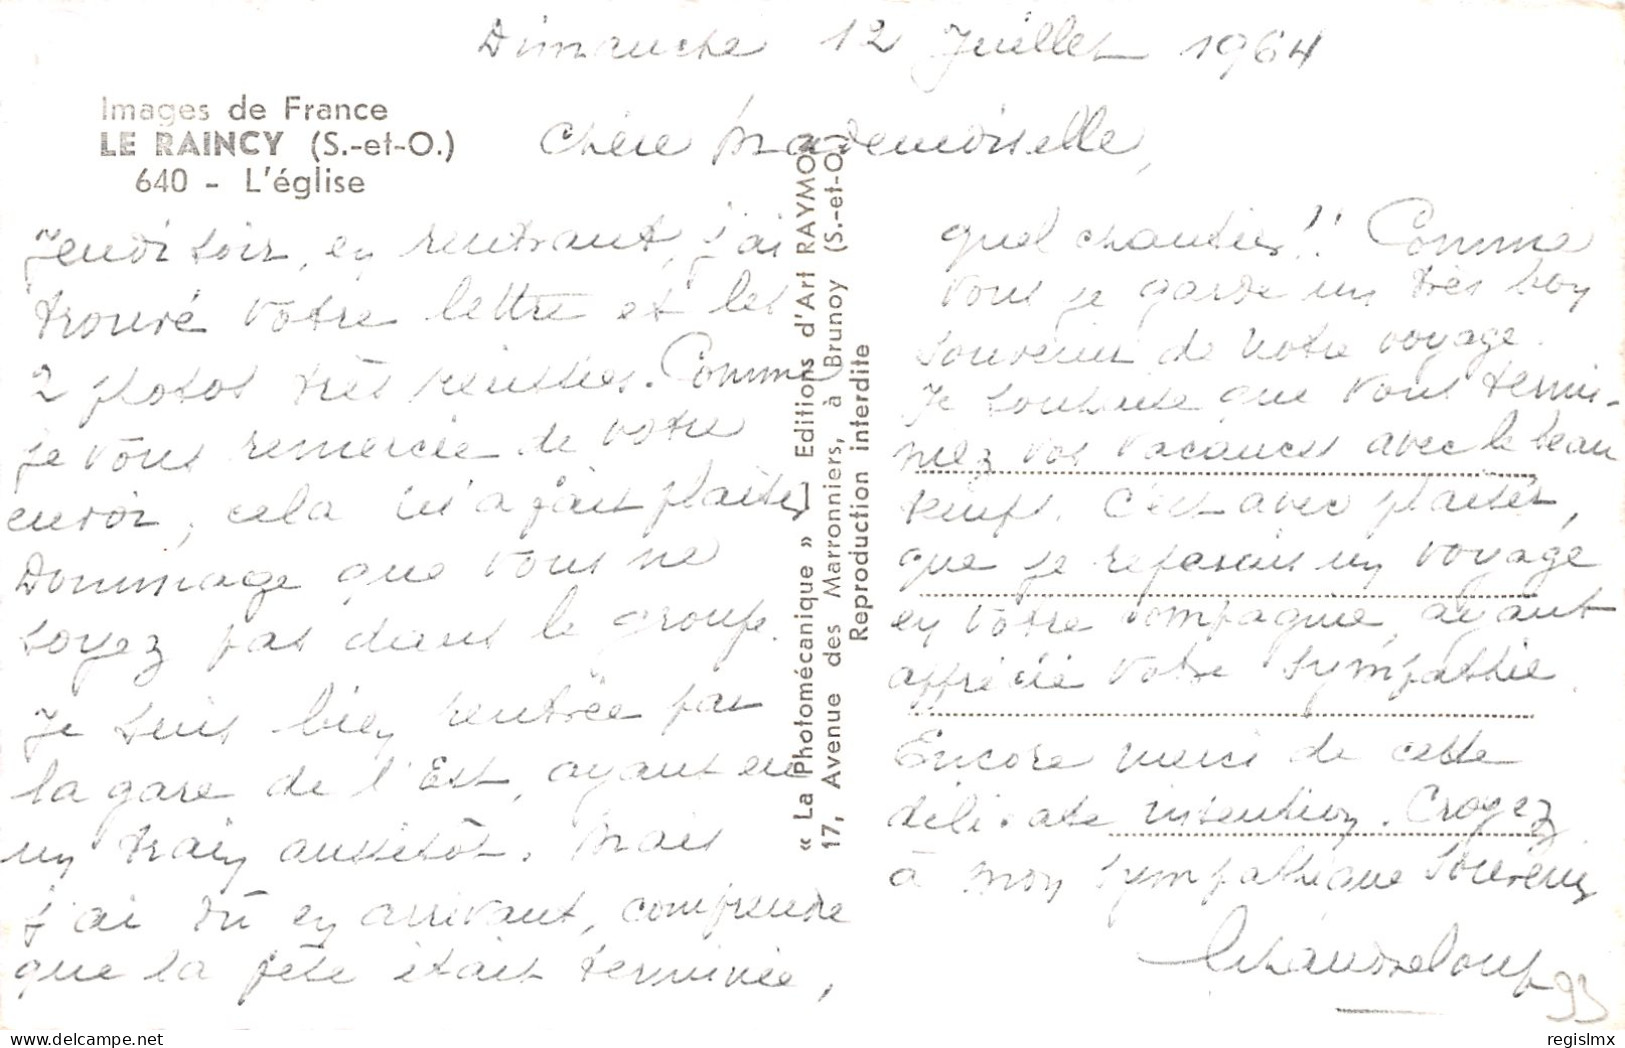 Dimanche 12 Juillet 1964
Images de France
LE RAINCY (S.-et-O.)
640 - L'église
Chère Mademoiselle,
Jeudi soir, en rentrant, j'ai
trouvé votre lettre et les
2 photos très réussies. Comme
je vous remercie de votre
envoi, cela m'a fait plaisir
Dommage que vous ne
soyez pas dans le groupe.
Je suis bien rentrée par
la gare de l'Est, ayant eu
un train aussitôt. Mais
j'ai dû en arrivant, comprendre
que la fête était terminée,
« La Photomécanique » Editions d'Art RAYMO
17, Avenue des Marronniers, à Brunoy (S.-et-O.
Reproduction interdite
quel chantier!! Comme
vous je garde un très bon
souvenir de notre voyage.
Je souhaite que vous termi-
niez vos vacances avec le beau
temps. C'est avec plaisir,
que je referais un voyage
en votre compagnie, ayant
apprécié votre sympathie.
Encore merci de cette
délicate intention. Croyez
à mon sympathique souvenir
93
regislmx